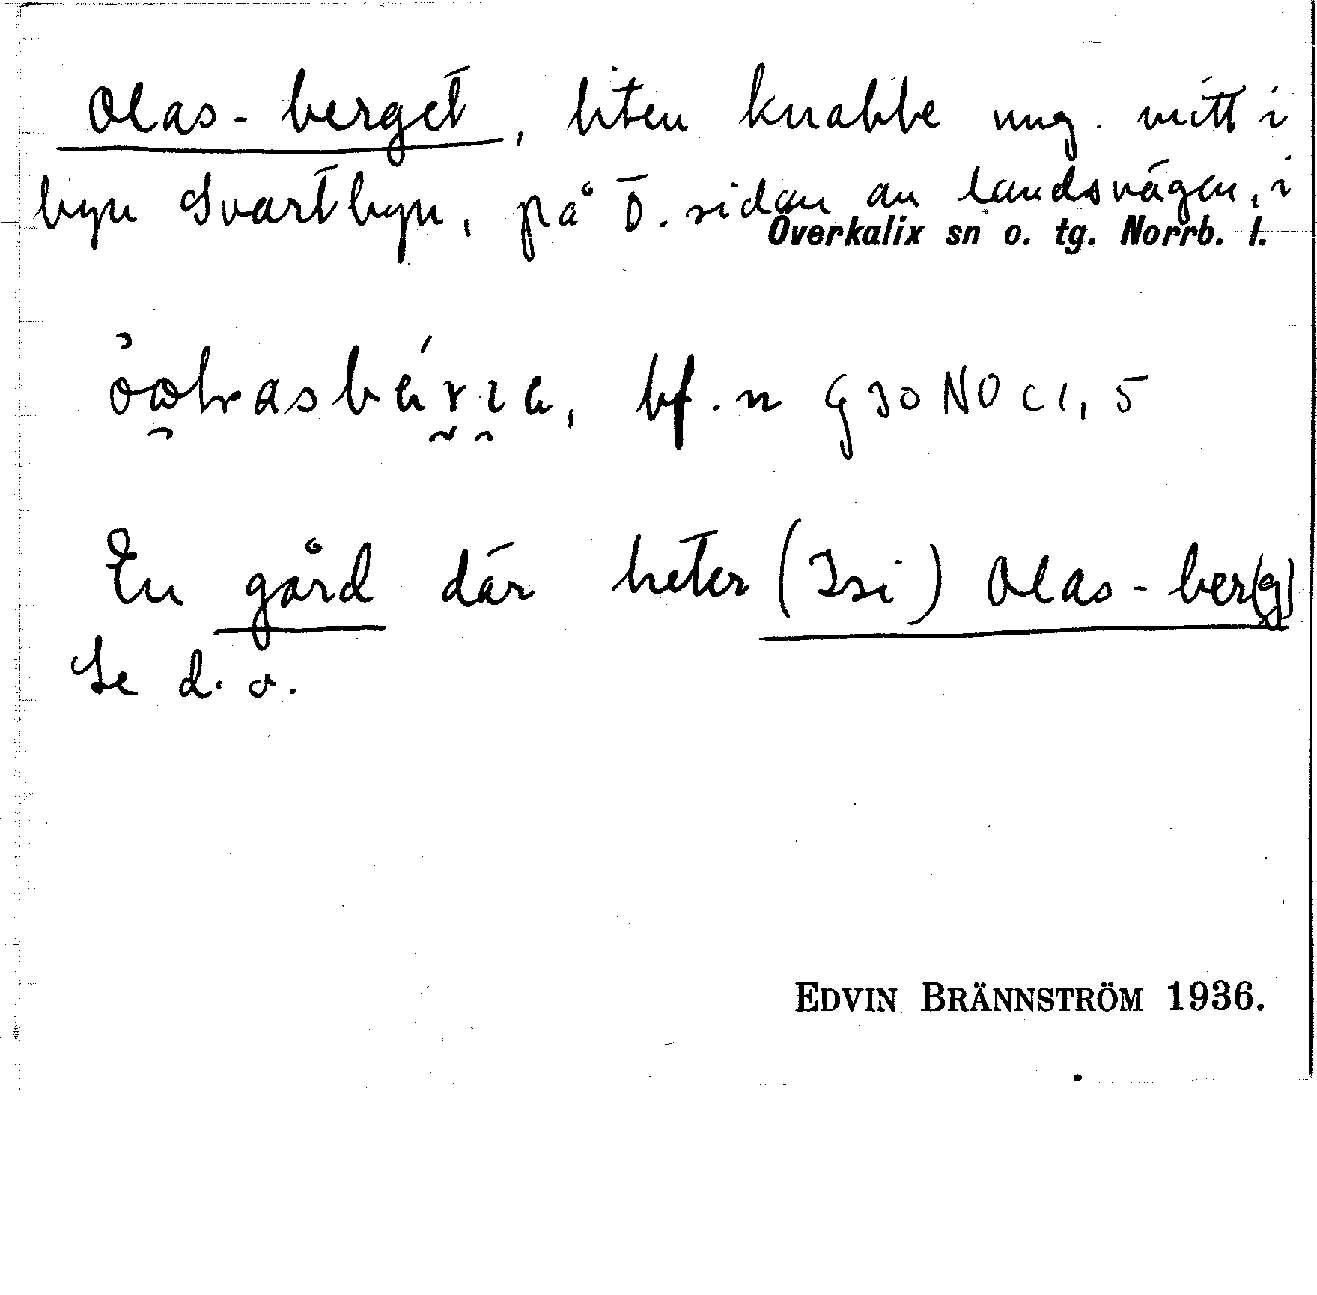 Olas-berget, liten knabbe ung. mitt i
byn Svartbyn, på Ö. sidan av landsvägen, i
Överkalix sn o. tg. Norrb. l.
bf. n G 30 NO c 1, 5
En gård där heter (Isi) Olas-ber(g)
Se d. o.
EDVIN BRÄNNSTRÖM 1936.